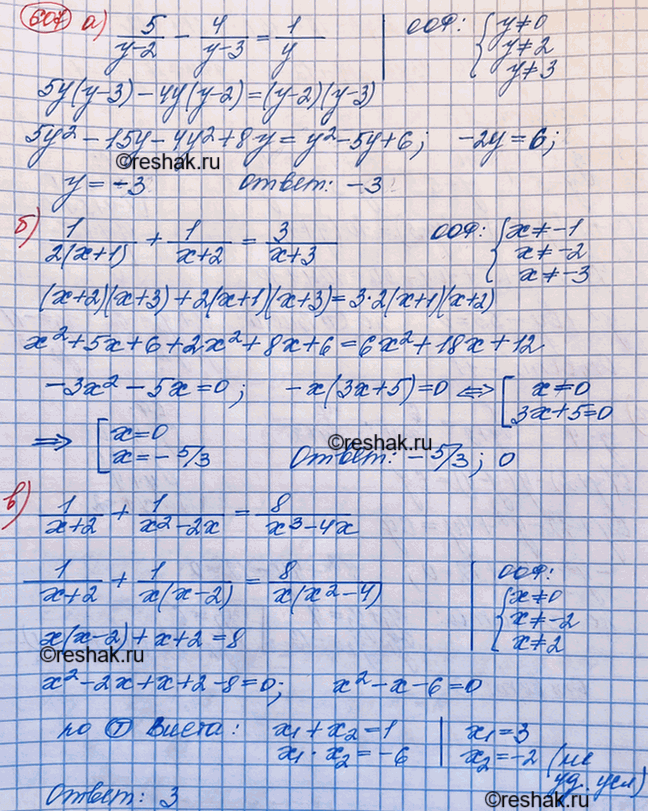 607 а) 5/(y-2) - 4/(y-3) = 1/y | ООФ: { y≠0
y≠2
y≠3
5y(y-3)-4y(y-2)=(y-2)(y-3)
5y²-15y-4y²+8y=y²-5y+6; -2y=6;
©reshak.ru
y=-3 Ответ: -3
б) 1/(2(x+1)) + 1/(x+2) = 3/(x+3) ООФ: { x≠-1
x≠-2
x≠-3
(x+2)(x+3)+2(x+1)(x+3)=3·2(x+1)(x+2)
x²+5x+6+2x²+8x+6=6x²+18x+12
-3x²-5x=0; -x(3x+5)=0 ⟺ [ x=0
3x+5=0
©reshak.ru
⟹ [ x=0
x=-5/3 Ответ: -5/3; 0
в) 1/(x+2) + 1/(x²-2x) = 8/(x³-4x)
1/(x+2) + 1/(x(x-2)) = 8/(x(x²-4)) | ООФ:
{ x≠0
x≠-2
x≠2
x(x-2)+x+2=8
©reshak.ru
x²-2x+x+2-8=0; x²-x-6=0
по Т Виета: x₁+x₂=1 | x₁=3
x₁·x₂=-6 | x₂=-2 (не
уд. усл)
Ответ: 3